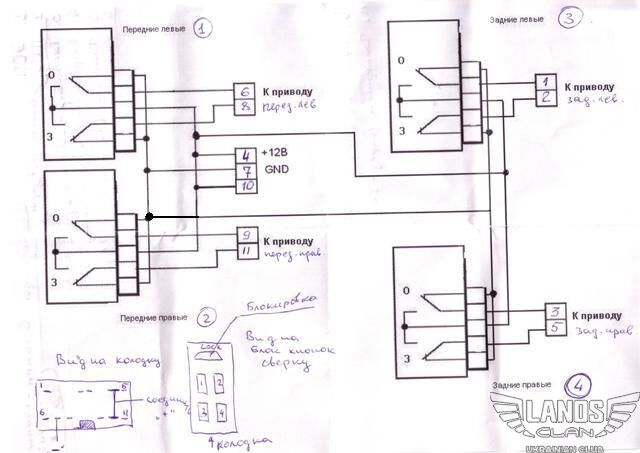 Передние левые
1
Задние левые
3
О
З
6
8
К приводу
перед. лев
О
З
1
2
К приводу
зад. лев.
4
7
10
+12В
GND
О
З
9
11
К приводу
перед. прав
О
З
3
5
К приводу
зад. прав.
Передние правые
2
Задние правые
4
Блокировка
Вид на колодку
1
5
6
11
соедин.
"+"
"-"
LOCK
1
2
3
4
Вид на
блок кнопок
сверху
колодка
LANOS
CLAN
UKRAINIAN CLUB